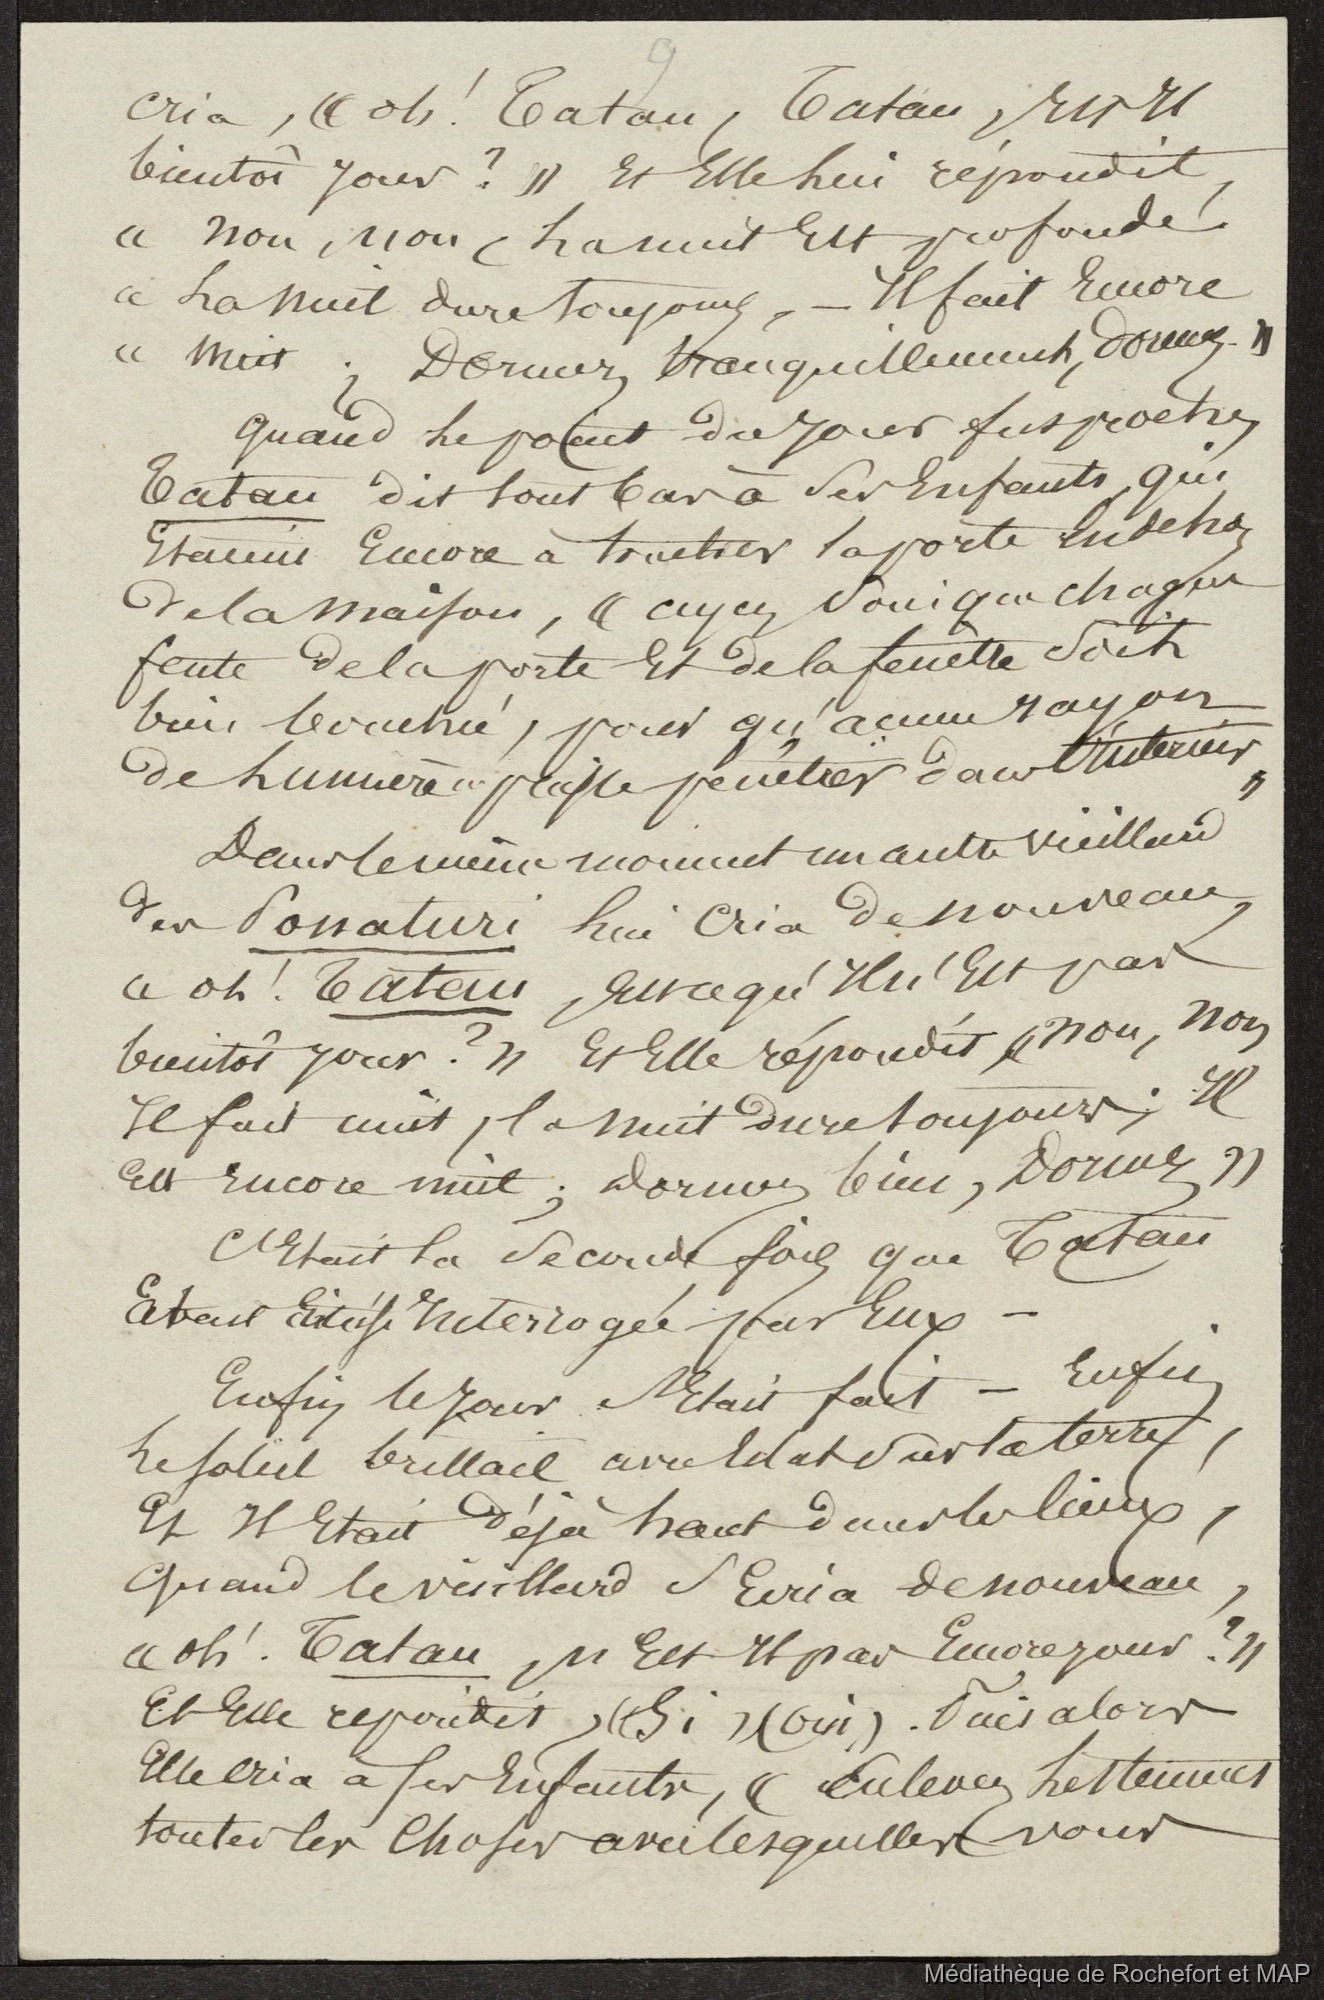 9
cria, « oh! Tatau, Tatau, Est Il
bientôt jour? » Et Elle lui répondit,
« non, non, la nuit Est profonde
« La nuit dure toujours, – Il fait Encore
« nuit ; Dormez tranquillement, dormez. »
Quand le point du jour fut proche,
Tatau dit tout bas à ses Enfants, qui
Etaient Encore à la porte En dehors
de la maison, « ayez soin que chaque
fente de la porte Et de la fenêtre soit
bien bouchée, pour qu'aucun rayon
de lumière puisse pénétrer dans l'intérieur »
Dans le même moment un autre vieillard
des Ponaturi lui cria de nouveau,
« oh! Tatau, Est ce qu'Il n'Est pas
bientôt jour? » Et Elle répondit « non, non
Il fait nuit, la nuit dure toujours ; Il
Est Encore nuit ; dormez bien, Dormez »
C'Etait la seconde fois que Tatau
Interrogée par Eux –
Enfin le jour s'Etait fait – Enfin
le soleil brillait avec Eclat sur la terre,
Et Il Etait déjà haut dans les cieux,
Quand le vieillard s'Ecria de nouveau,
« oh! Tatau, n'Est Il pas Encore jour? »
Et Elle répondit, « Si » (oui). Puis alors
Elle cria à ses Enfants, « Enlevez lestement
toutes les choses avec lesquelles vous
Médiathèque de Rochefort et MAP